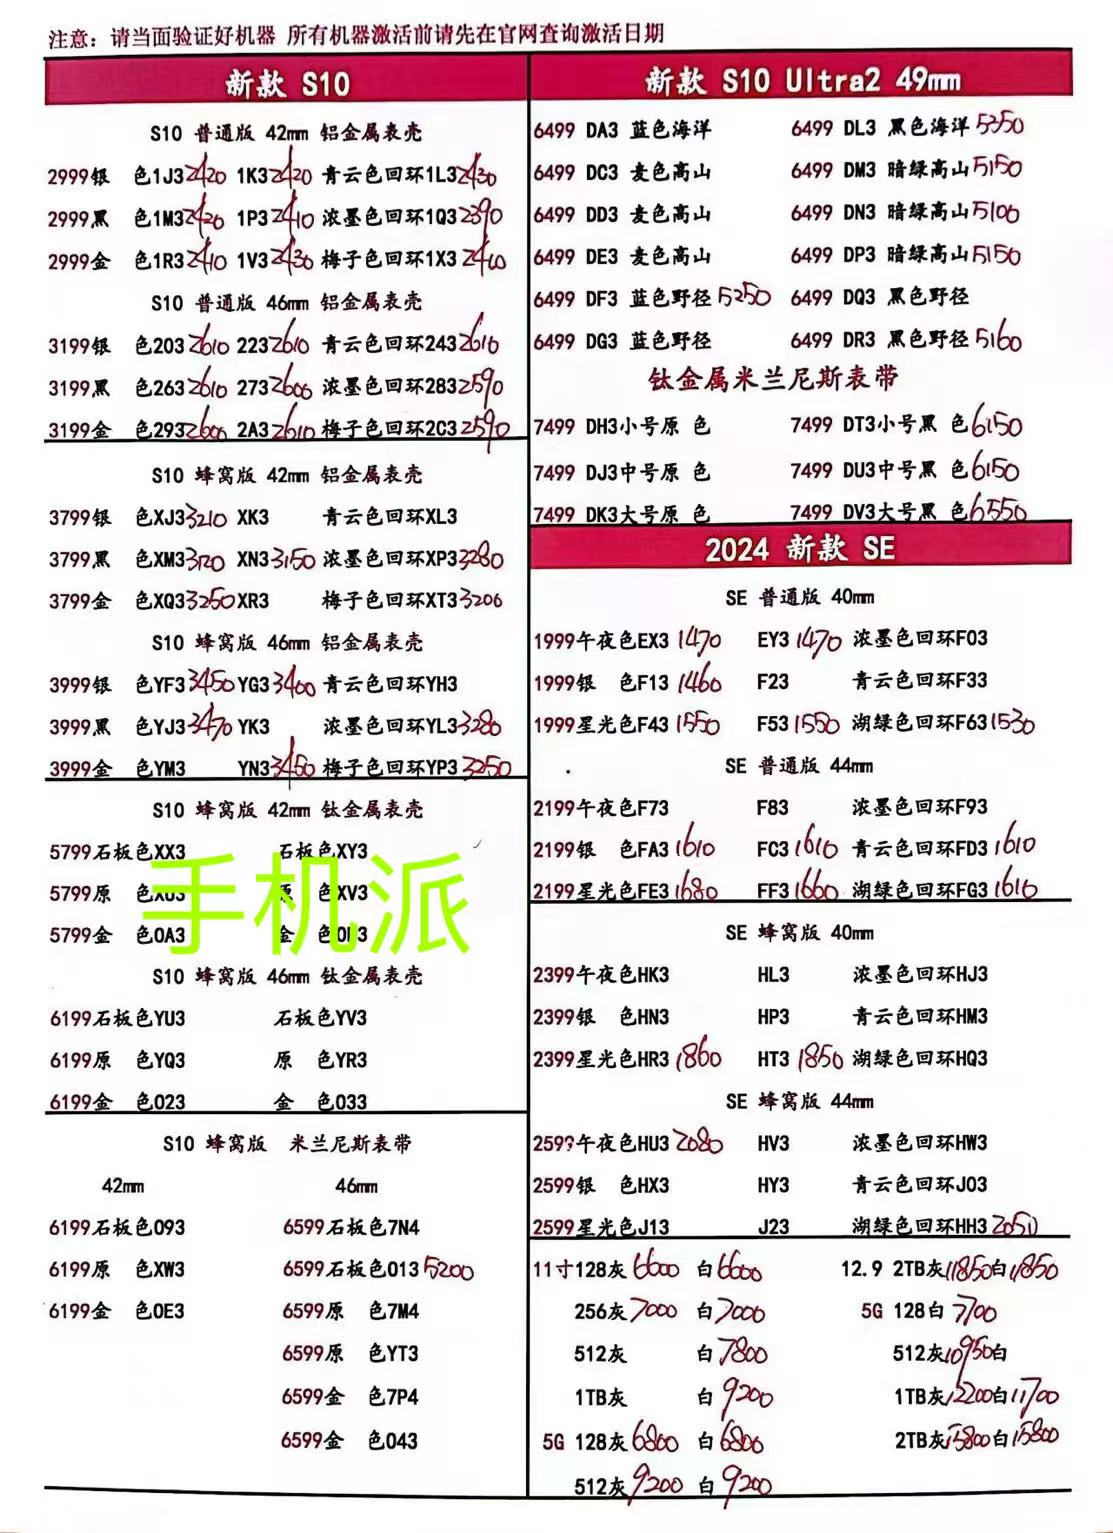 注意：请当面验证好机器 所有机器激活前请先在官网查询激活日期
新款 S10
S10 普通版 42mm 铝金属表壳
2999银 色1J3 2420 1K3 2420 青云色回环1L3 2430
2999黑 色1M3 2420 1P3 2410 浓墨色回环1Q3 2390
2999金 色1R3 2410 1V3 2430 梅子色回环1X3 2410
S10 普通版 46mm 铝金属表壳
3199银 色203 2610 223 2610 青云色回环243 2610
3199黑 色263 2610 273 2600 浓墨色回环283 2590
3199金 色293 2600 2A3 2610 梅子色回环2C3 2590
S10 蜂窝版 42mm 铝金属表壳
3799银 色XJ3 3210 XK3 青云色回环XL3
3799黑 色XM3 3120 XN3 3150 浓墨色回环XP3 3280
3799金 色XQ3 3250 XR3 梅子色回环XT3 3200
S10 蜂窝版 46mm 铝金属表壳
3999银 色YF3 3450 YG3 3400 青云色回环YH3
3999黑 色YJ3 3470 YK3 浓墨色回环YL3 3280
3999金 色YM3 YN3 3450 梅子色回环YP3 3250
S10 蜂窝版 42mm 钛金属表壳
5799石板色XX3 石板色XY3
5799原 色XU3 原 色XV3
手机派
5799金 色0A3 金 色
S10 蜂窝版 46mm 钛金属表壳
6199石板色YU3 石板色YV3
6199原 色YQ3 原 色YR3
6199金 色023 金 色033
S10 蜂窝版 米兰尼斯表带
42mm 46mm
6199石板色093 6599石板色7N4
6199原 色XW3 6599石板色013 5200
6199金 色0E3 6599原 色7M4
6599原 色YT3
6599金 色7P4
6599金 色043
新款 S10 Ultra2 49mm
6499 DA3 蓝色海洋 6499 DL3 黑色海洋 5350
6499 DC3 麦色高山 6499 DM3 暗绿高山 5150
6499 DD3 麦色高山 6499 DN3 暗绿高山 5100
6499 DE3 麦色高山 6499 DP3 暗绿高山 5150
6499 DF3 蓝色野径 5250 6499 DQ3 黑色野径
6499 DG3 蓝色野径 6499 DR3 黑色野径 5160
钛金属米兰尼斯表带
7499 DH3小号原 色 7499 DT3小号黑 色 6150
7499 DJ3中号原 色 7499 DU3中号黑 色 6150
7499 DK3大号原 色 7499 DV3大号黑 色 6550
2024 新款 SE
SE 普通版 40mm
1999午夜色EX3 1470 EY3 1470 浓墨色回环F03
1999银 色F13 1460 F23 青云色回环F33
1999星光色F43 1550 F53 1550 湖绿色回环F63 1530
SE 普通版 44mm
2199午夜色F73 F83 浓墨色回环F93
2199银 色FA3 1610 FC3 1610 青云色回环FD3 1610
2199星光色FE3 1680 FF3 1660 湖绿色回环FG3 1610
SE 蜂窝版 40mm
2399午夜色HK3 HL3 浓墨色回环HJ3
2399银 色HN3 HP3 青云色回环HM3
2399星光色HR3 1860 HT3 1850 湖绿色回环HQ3
SE 蜂窝版 44mm
2599午夜色HU3 2080 HV3 浓墨色回环HW3
2599银 色HX3 HY3 青云色回环J03
2599星光色J13 J23 湖绿色回环HH3 2050
11寸128灰 6600 白 6600 12.9 2TB灰 11850 白 11850
256灰 7000 白 7000 5G 128白 7700
512灰 白 7800 512灰 10950 白
1TB灰 白 9200 1TB灰 12200 白 11700
5G 128灰 6800 白 6800 2TB灰 15800 白 15800
512灰 9200 白 9200